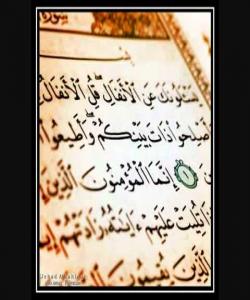 سورة
يَسْـَٔلُونَكَ عَنِ ٱلْأَنفَالِ ۖ قُلِ ٱلْأَنفَالُ
أَصْلِحُوا۟ ذَاتَ بَيْنِكُمْ ۖ وَأَطِيعُوا۟
١ إِنَّمَا ٱلْمُؤْمِنُونَ ٱلَّذِينَ
تُلِيَتْ عَلَيْهِمْ ءَايَـٰتُهُۥ زَادَتْهُمْ
ٱلَّذِينَ يُقِيمُونَ